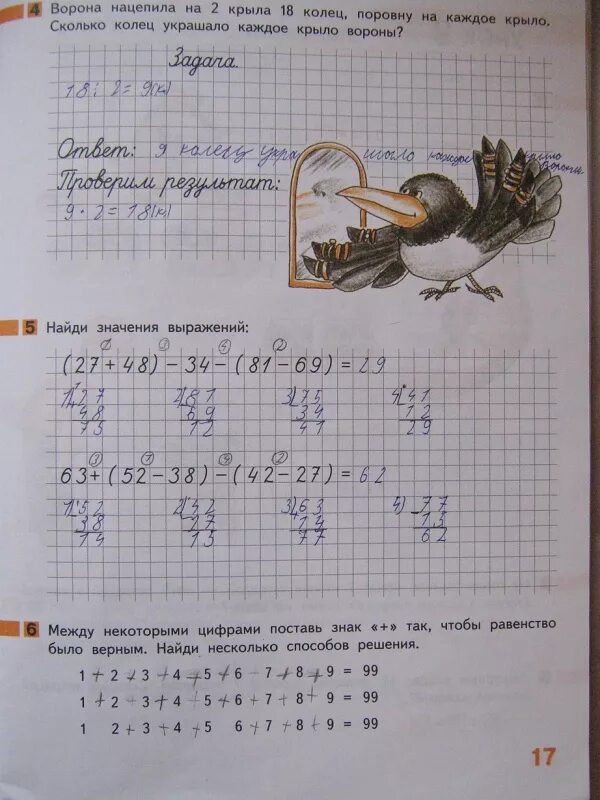 4 Ворона нацепила на 2 крыла 18 колец, поровну на каждое крыло.
Сколько колец украшало каждое крыло вороны?
Задача.
18 : 2 = 9(к)
Ответ: 9 колец укра шало каждое крыло вороны
Проверим результат:
9 · 2 = 18(к)
5 Найди значения выражений:
1 3 4 2
(27 + 48) − 34 − (81 − 69) = 29
1) 27 2) 81 3) 75 4) 41
48 69 34 12
75 12 41 29
3 1 4 2
63 + (52 − 38) − (42 − 27) = 62
1) 52 2) 42 3) 63 4) 77
38 27 14 15
14 15 77 62
6 Между некоторыми цифрами поставь знак «+» так, чтобы равенство
было верным. Найди несколько способов решения.
1 + 2 + 3 + 4 + 5 + 6 7 + 8 + 9 = 99
1 + 2 + 3 + 4 + 5 + 6 + 7 + 8 + 9 = 99
1 2 + 3 + 4 + 5 6 + 7 + 8 + 9 = 99
17